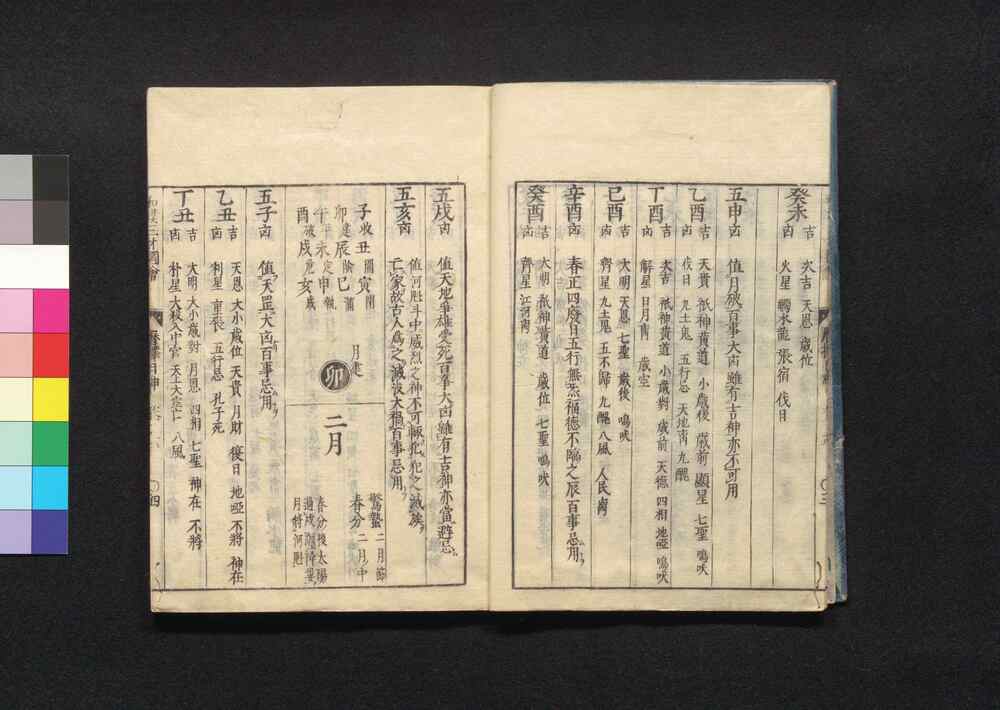 癸未 吉 凶
次吉 天恩 歳位
火星 觸水龍 張宿 伐日
五申 凶 値月殺百事大凶雖有吉神亦不可用
乙酉 吉 凶
天貴 祇神黄道 小歳後 歳前 顯星 七聖 鳴吠
伐日 九土鬼 五行忌 天地凶 九醜
丁酉 吉 凶
次吉 祇神黄道 小歳對 歳前 天徳 四相 地啞 鳴吠
解星 日月凶 歳空
己酉 吉 凶
大明 天恩 七聖 歳後 鳴吠
齊星 九土鬼 五不歸 九醜 八風 人民凶
辛酉 凶 春正四廢日五行無氣福徳不臨之辰百事忌用
癸酉 吉 凶
大明 祇神黄道 歳位 七聖 鳴吠
齊星 江河凶
五戌 凶 値天地爭雄受死百事大凶雖有吉神亦當避忌
五亥 凶
値河魁斗中威烈之神不可輙犯犯之滅族
亡家故古人爲之滅没大禍百事忌用
子收 丑開 寅閉
卯建 辰除 巳滿
午平 未定 申執
酉破 戌危 亥成
月建 卯
二月
驚蟄 二月節
春分 二月中
春分後太陽
過戌
月將河魁
五子 凶 値天罡大凶百事忌用
乙丑 吉 凶
天恩 大小歳位 天貴 月財 復日 地啞 不將 神在
利星 重張 五行忌 孔子死
丁丑 吉 凶
大明 大小歳對 月恩 四相 七聖 神在 不將
朴星 大殺入中宮 天上大空亡 八風
和漢三才圖會
四